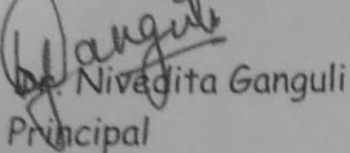 Ganguli
Dr. Nivedita Ganguli
Principal